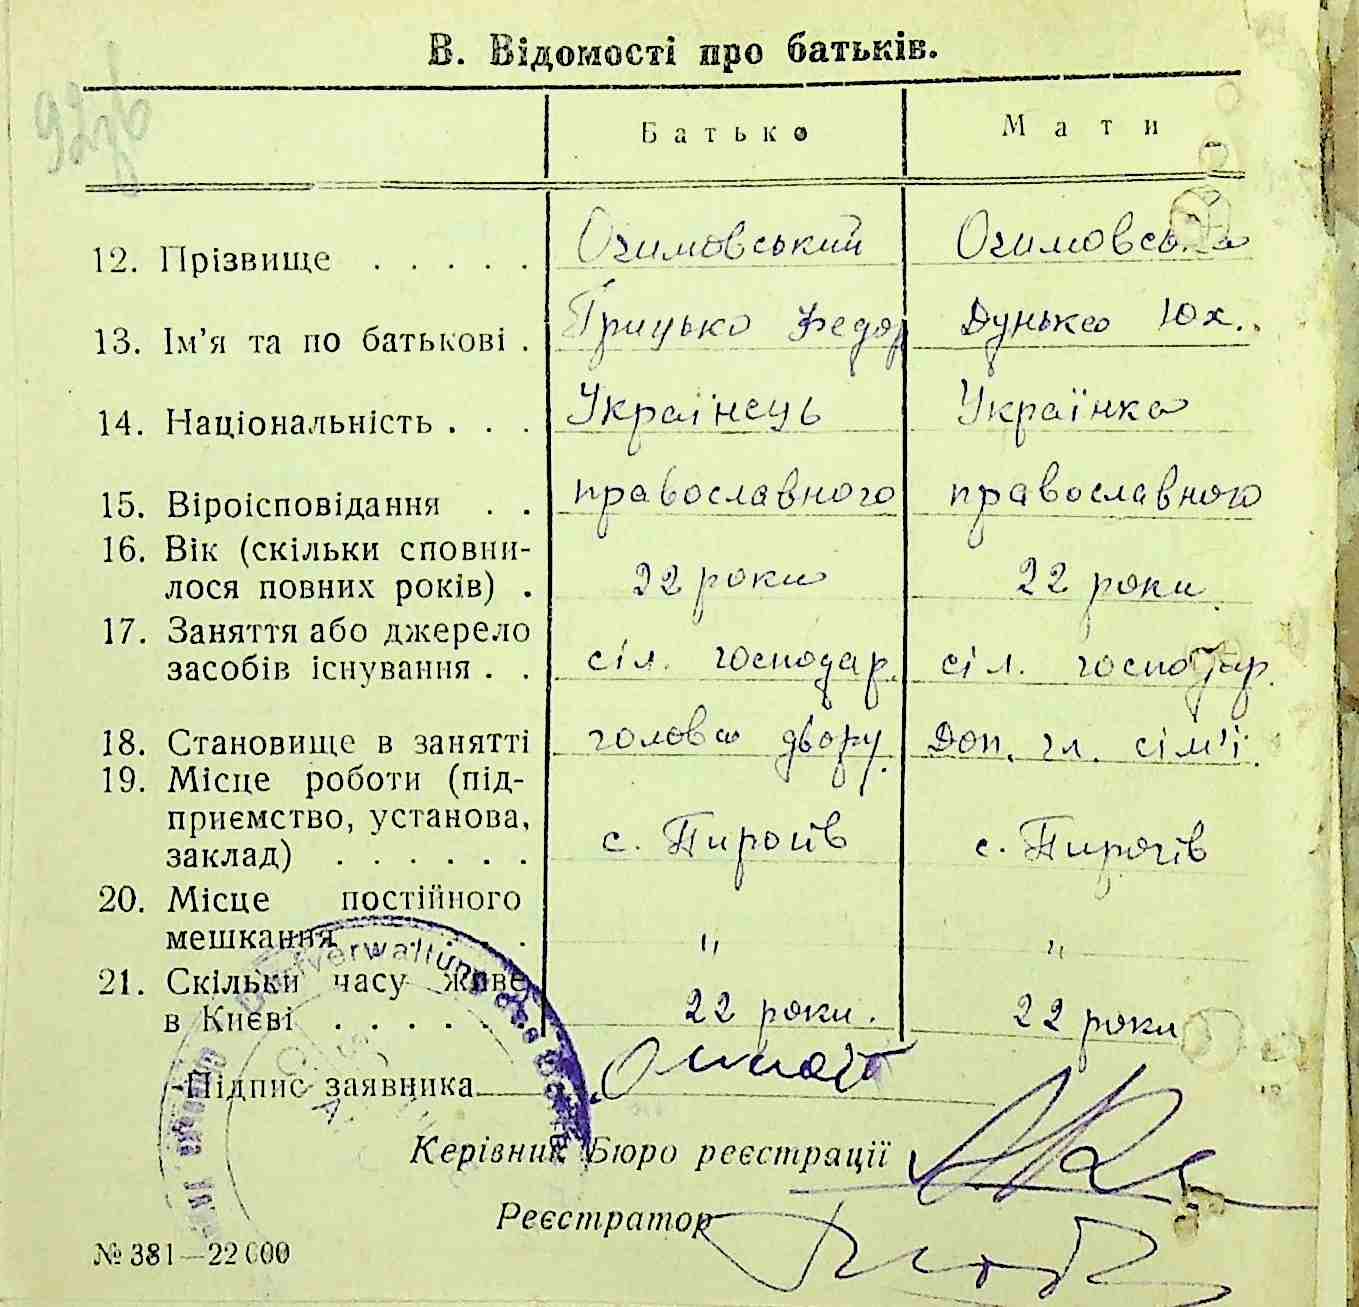 В. Відомості про батьків.
Батько Мати
12. Прізвище . . . . . Очимовський Очимовська
13. Ім'я та по батькові . Грицько Федор Дунька Юх.
14. Національність . . . Українець Українка
15. Віроісповідання . . православного православного
16. Вік (скільки сповни-
лося повних років) . 22 роки 22 роки
17. Заняття або джерело
засобів існування . . сіл. господар. сіл. господар.
18. Становище в занятті голова двору Доп. гл. сім'ї
19. Місце роботи (під-
приємство, установа,
заклад) . . . . . . с. Пирогів с. Пирогів
20. Місце постійного
мешкання . . . . " "
21. Скільки часу живе
в Києві . . . . . . 22 роки. 22 роки
Підпис заявника
Керівник Бюро реєстрації
Реєстратор
№ 381—22 000
Dorfverwaltung